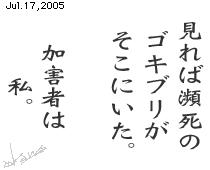 Jul.17,2005
見れば瀕死の
ゴキブリが
そこにいた。
加害者は
私。